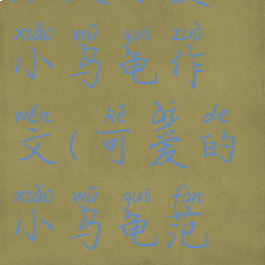 xiǎo wū guī zuò
小乌龟作
wén kě ài de
文(可爱的
xiǎo wū guī fàn
小乌龟范